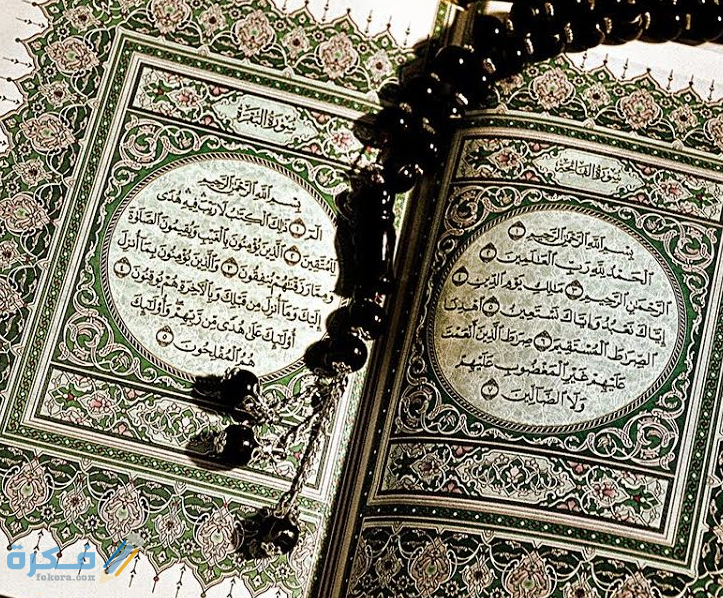 سورة الفاتحة
بسم الله الرحمن الرحيم ١
الحمد لله رب العالمين ٢
الرحمن الرحيم ٣ مالك يوم الدين ٤
إياك نعبد وإياك نستعين ٥ اهدنا
الصراط المستقيم ٦ صراط الذين أنعمت
عليهم غير المغضوب عليهم
ولا الضالين ٧
سورة البقرة
بسم الله الرحمن الرحيم
الم ١ ذلك الكتاب لا ريب فيه هدى
للمتقين ٢ الذين يؤمنون بالغيب ويقيمون الصلوة
ومما رزقنهم ينفقون ٣ والذين يؤمنون بما أنزل
إليك وما أنزل من قبلك وبالآخرة هم يوقنون ٤
أولئك على هدى من ربهم وأولئك
هم المفلحون ٥
فكرة
fekera.com